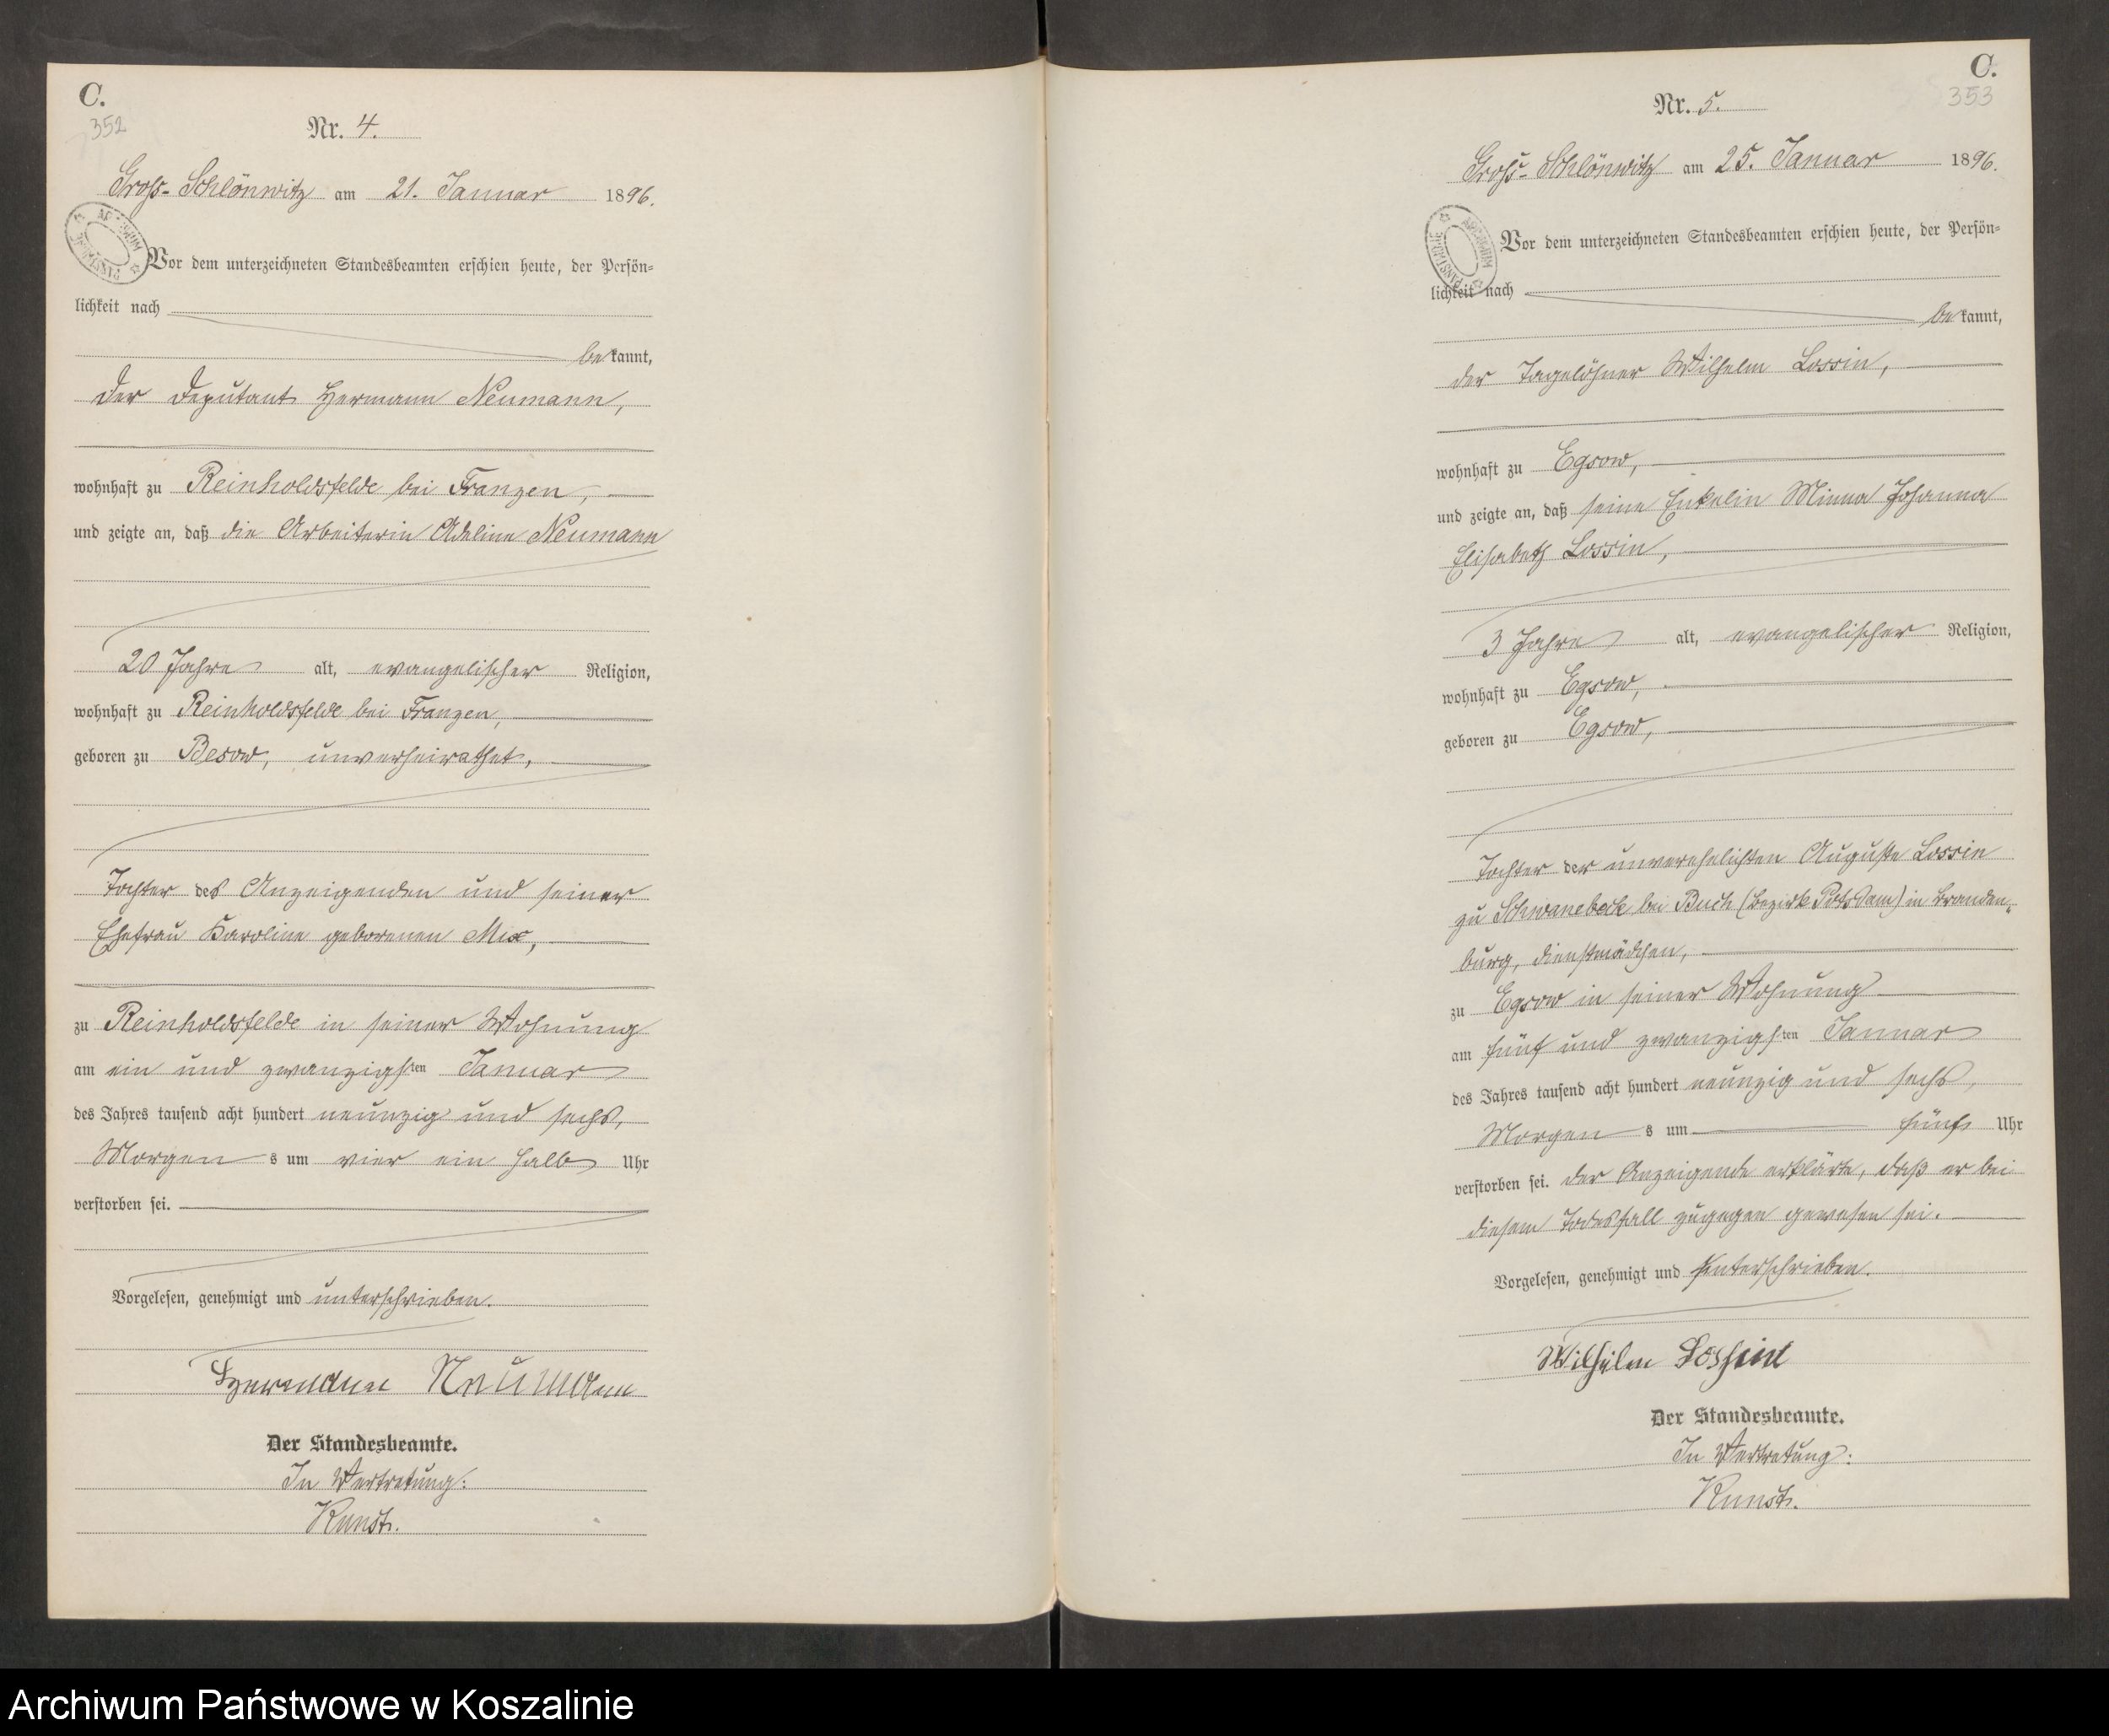 C.
352
Nr. 4.
Groß-Schlönwitz am 21. Januar 1896.
Vor dem unterzeichneten Standesbeamten erschien heute, der Persön-
lichkeit nach
bekannt,
der Deputant Hermann Neumann,
wohnhaft zu Reinholdsfelde bei Franzen,
und zeigte an, daß die Arbeiterin Adeline Neumann
20 Jahre alt, evangelischer Religion,
wohnhaft zu Reinholdsfelde bei Franzen,
geboren zu Besow, unverheirathet,
Tochter des Anzeigenden und seiner
Ehefrau Karoline geborenen Mix,
zu Reinholdsfelde in seiner Wohnung
am ein und zwanzigsten Januar
des Jahres tausend acht hundert neunzig und sechs,
Morgens um vier ein halb Uhr
verstorben sei.
Vorgelesen, genehmigt und unterschrieben.
Hermann Neumann
Der Standesbeamte.
In Vertretung:
Kunst.
C.
353
Nr. 5.
Groß-Schlönwitz am 25. Januar 1896.
ARCHIWUM PAŃSTWOWE
Vor dem unterzeichneten Standesbeamten erschien heute, der Persön-
lichkeit nach
bekannt,
der Tagelöhner Wilhelm Lossin,
wohnhaft zu Egsow,
und zeigte an, daß seine Enkelin Minna Johanna
Elisabeth Lossin,
3 Jahre alt, evangelischer Religion,
wohnhaft zu Egsow,
geboren zu Egsow,
Tochter der unverehelichten Auguste Lossin
zu Schwanebeck bei Buch (Bezirk Potsdam) in Branden-
burg, Dienstmädchen,
zu Egsow in seiner Wohnung
am fünf und zwanzigsten Januar
des Jahres tausend acht hundert neunzig und sechs,
Morgens um fünf Uhr
verstorben sei. Der Anzeigende erklärte, daß er bei
diesem Todesfall zugegen gewesen sei.
Vorgelesen, genehmigt und unterschrieben.
Wilhelm Lossin
Der Standesbeamte.
In Vertretung:
Kunst.
Archiwum Państwowe w Koszalinie